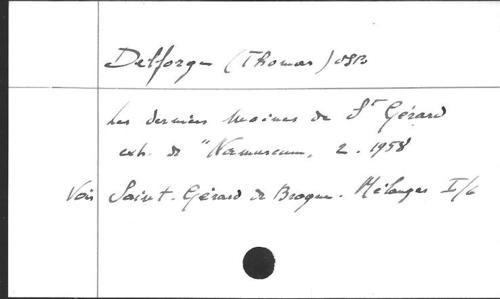 Delforge (Thomas) OSB
Les derniers Moines de St Gérard
extr. de "Namurcum, 2. 1958
Voir Saint-Gérard de Brogne. Mélanges I/6